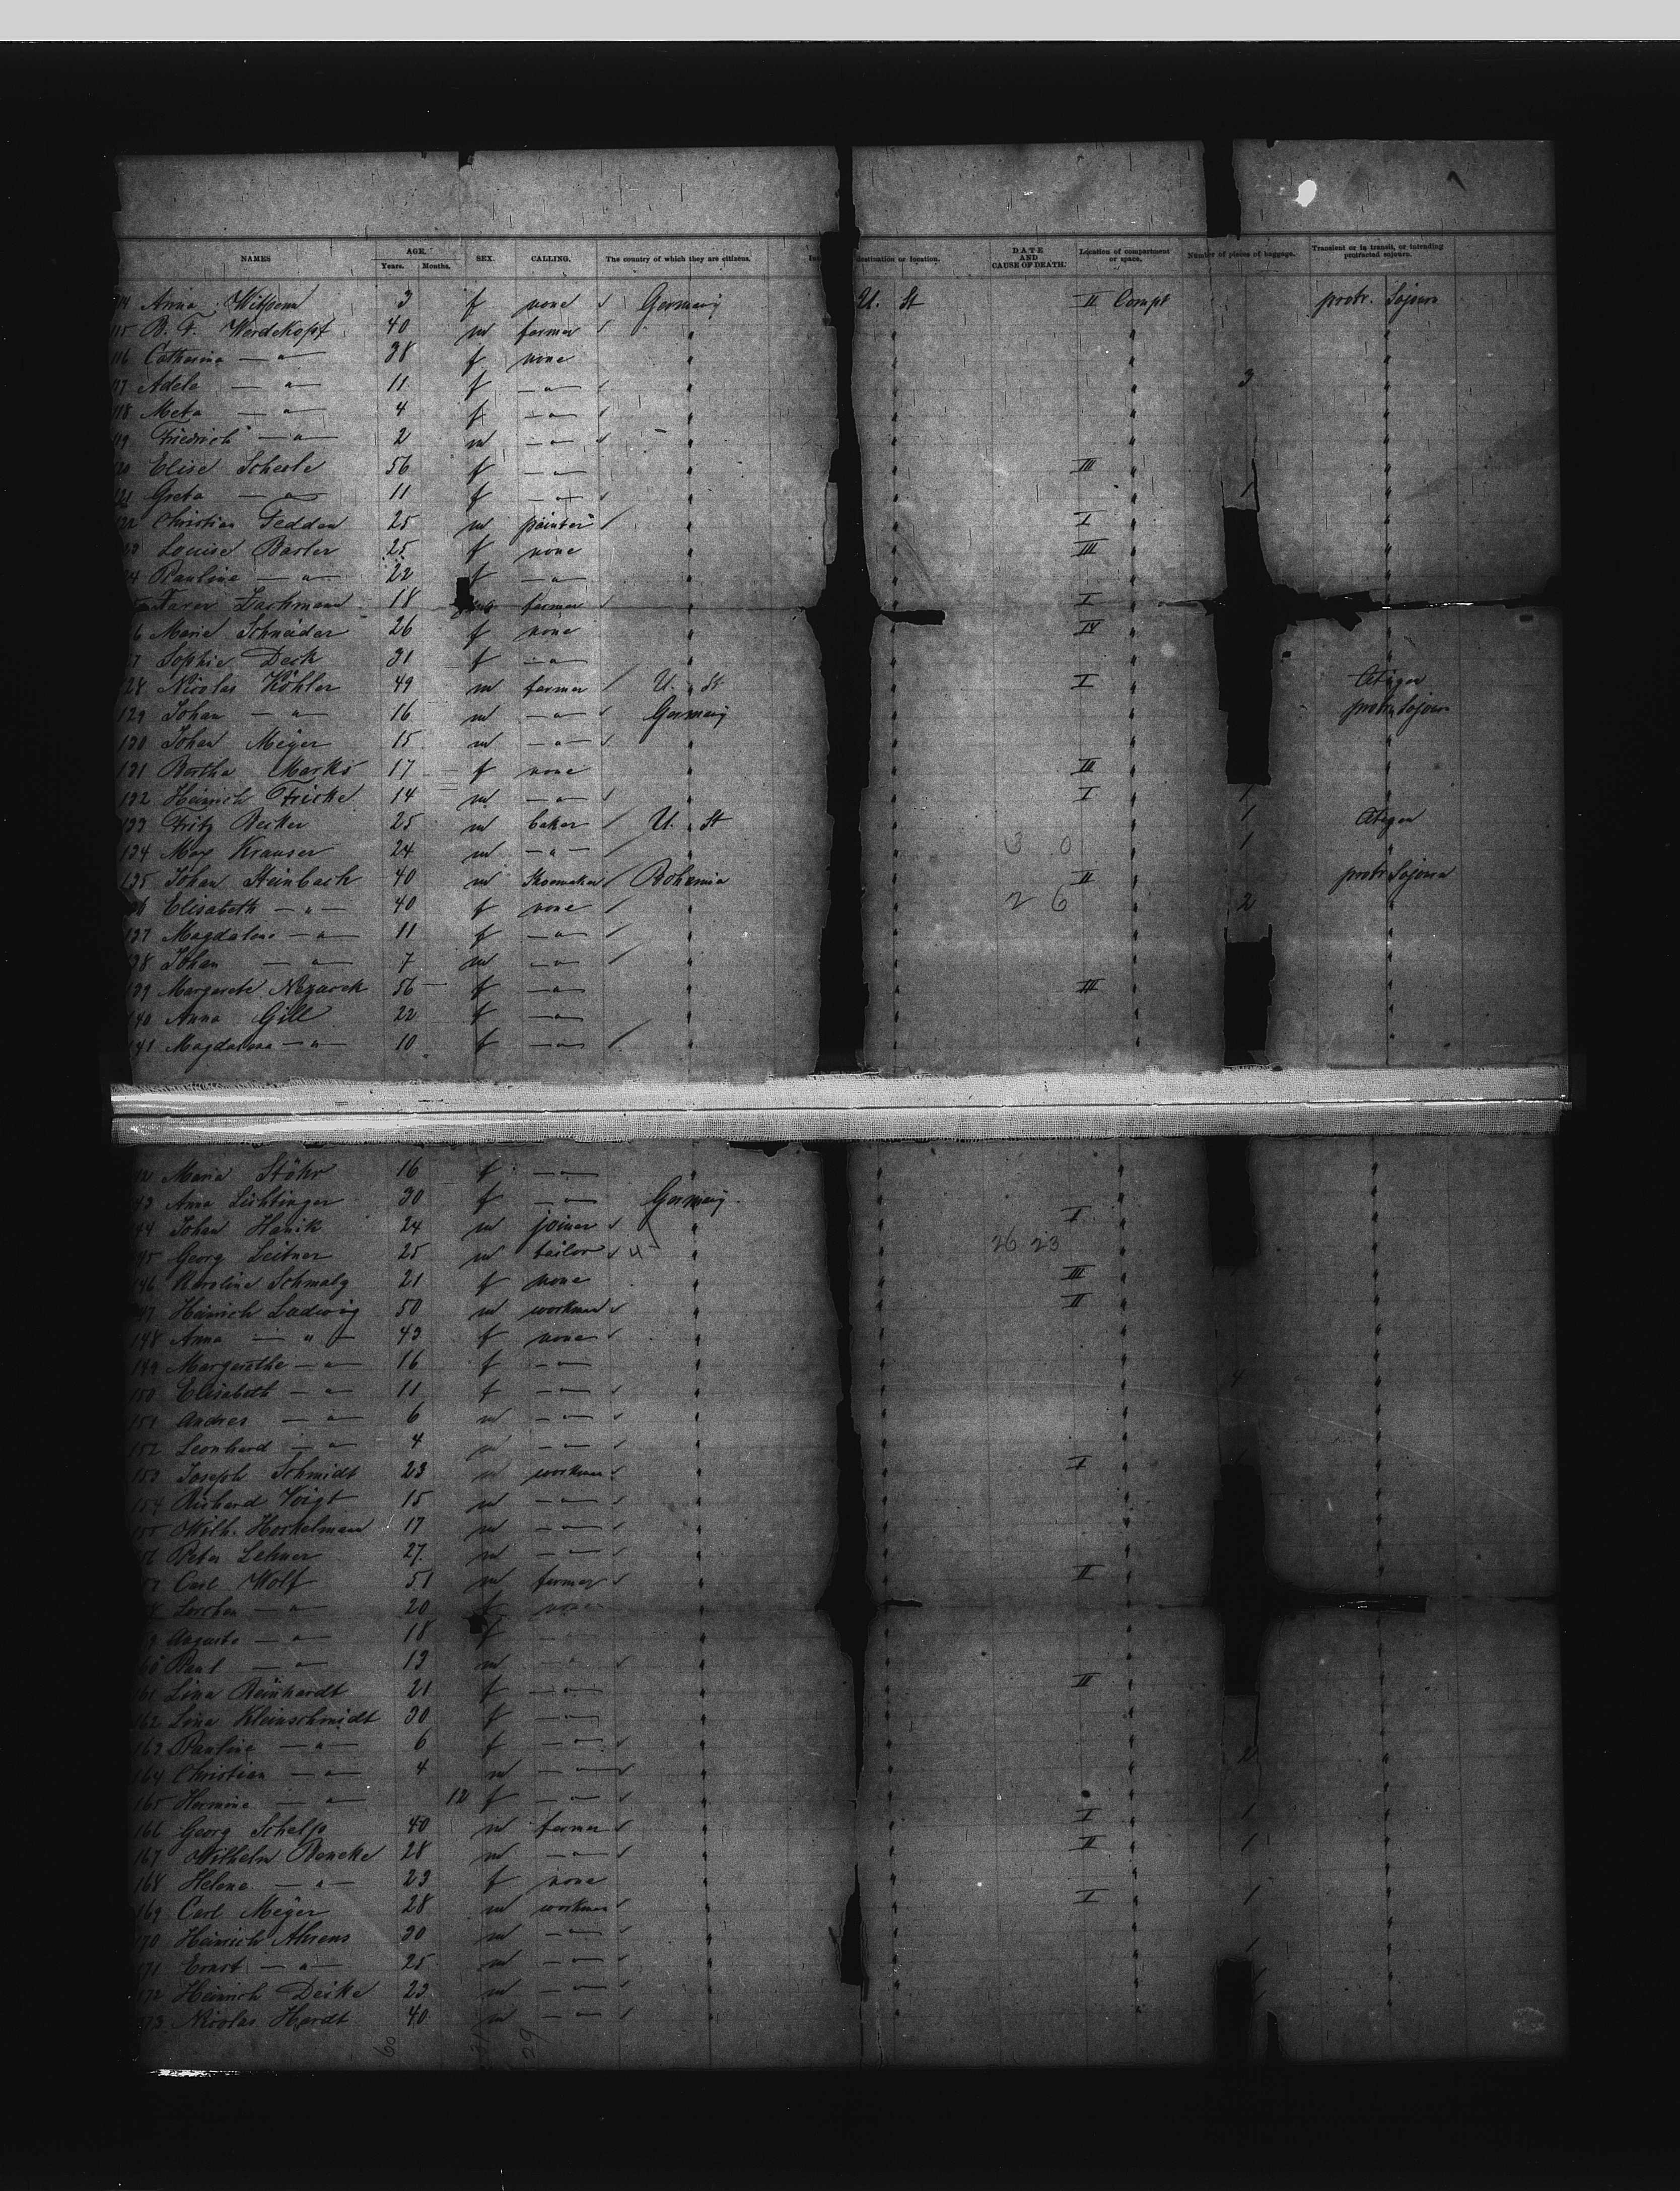 NAMES AGE. Years. Months. SEX. CALLING. The country of which they are citizens. destination or location. DATE AND CAUSE OF DEATH. Location of compartment or space. Number of pieces of baggage. Transient or in transit, or intending protracted sojourn.
Anna 3 f none Germany U. St II Compt protr. Sojourn
115 B. F. Werdekopf 40 m farmer "
116 Catharina — " — 38 f none "
117 Adele — " — 11 f — " — 3
118 Meta — " — 4 f — " —
119 Friedrich — " — 2 m — " —
120 Elise Scheele 56 f — " — III
121 Greta — " — 11 f — " — 1
122 Christian Fedden 25 m painter I
Louise Basler 25 f none III
Pauline — " — 22 f — " —
18 farmer I
Marie Schneider 26 f none IV
Sophie Deck 31 f — " —
128 Nicolas Köhler 49 m farmer U. St I
129 Johan — " — 16 m — " — Germany protr. Sojourn
130 Johan Meyer 15 m — " —
131 Bertha Marks 17 f none III
132 Heinrich Fricke 14 m — " — I 1
133 Fritz Becker 25 m baker U. St 1
134 Max Krauser 24 m — " — 3 0 1
135 Johan Steinbach 40 m Shoemaker Bohemia II protr Sojourn
136 Elisabeth — " — 40 f none 2 6 2
137 Magdalena — " — 11 f — " —
138 Johan — " — 7 m — " —
139 Margarete 56 f — " — III
140 Anna Gill 22 f — " —
141 Magdalena — " — 10 f — " —
142 Maria Stöhr 16 f — " —
143 Anna Lichtinger 30 f — " — Germany
144 Johan Hanik 24 m joiner I
145 Georg Leitner 25 m tailor 26 23
146 Karoline Schmalz 21 f none III
147 Heinrich Ludwig 50 m workman II
148 Anna — " — 43 f none
149 Margarethe — " — 16 f — " —
150 Elisabeth — " — 11 f — " — 4
151 Andres — " — 6 m — " —
152 Leonhard — " — 4 m — " —
153 Joseph Schmidt 23 m workman I
154 Richard Voigt 15 m — " —
155 Wilh. Horkelmann 17 m — " —
156 Peter Lehner 27 m — " —
Carl Wolf 51 m farmer II
— " — 20 f none
Auguste — " — 18 f
160 Paul — " — 13 m — " —
161 Lina Reinhardt 21 f — " — III
162 Lina Kleinschmidt 30 f — " —
163 Pauline — " — 6 f — " — 2
164 Christian — " — 4 m — " —
165 Hermine — " — 12 f — " —
166 Georg Schelp 40 m farmer I 1
167 Wilhelm Beneke 28 m — " — II 1
168 Helene — " — 23 f none
169 Carl Meyer 28 m workman I 1
170 Heinrich Ahrens 30 m — " — 1
171 Ernst — " — 25 m — " —
172 Heinrich Deike 23 m — " —
173 Nicolas Hardt 40 m — " —
60 31 29